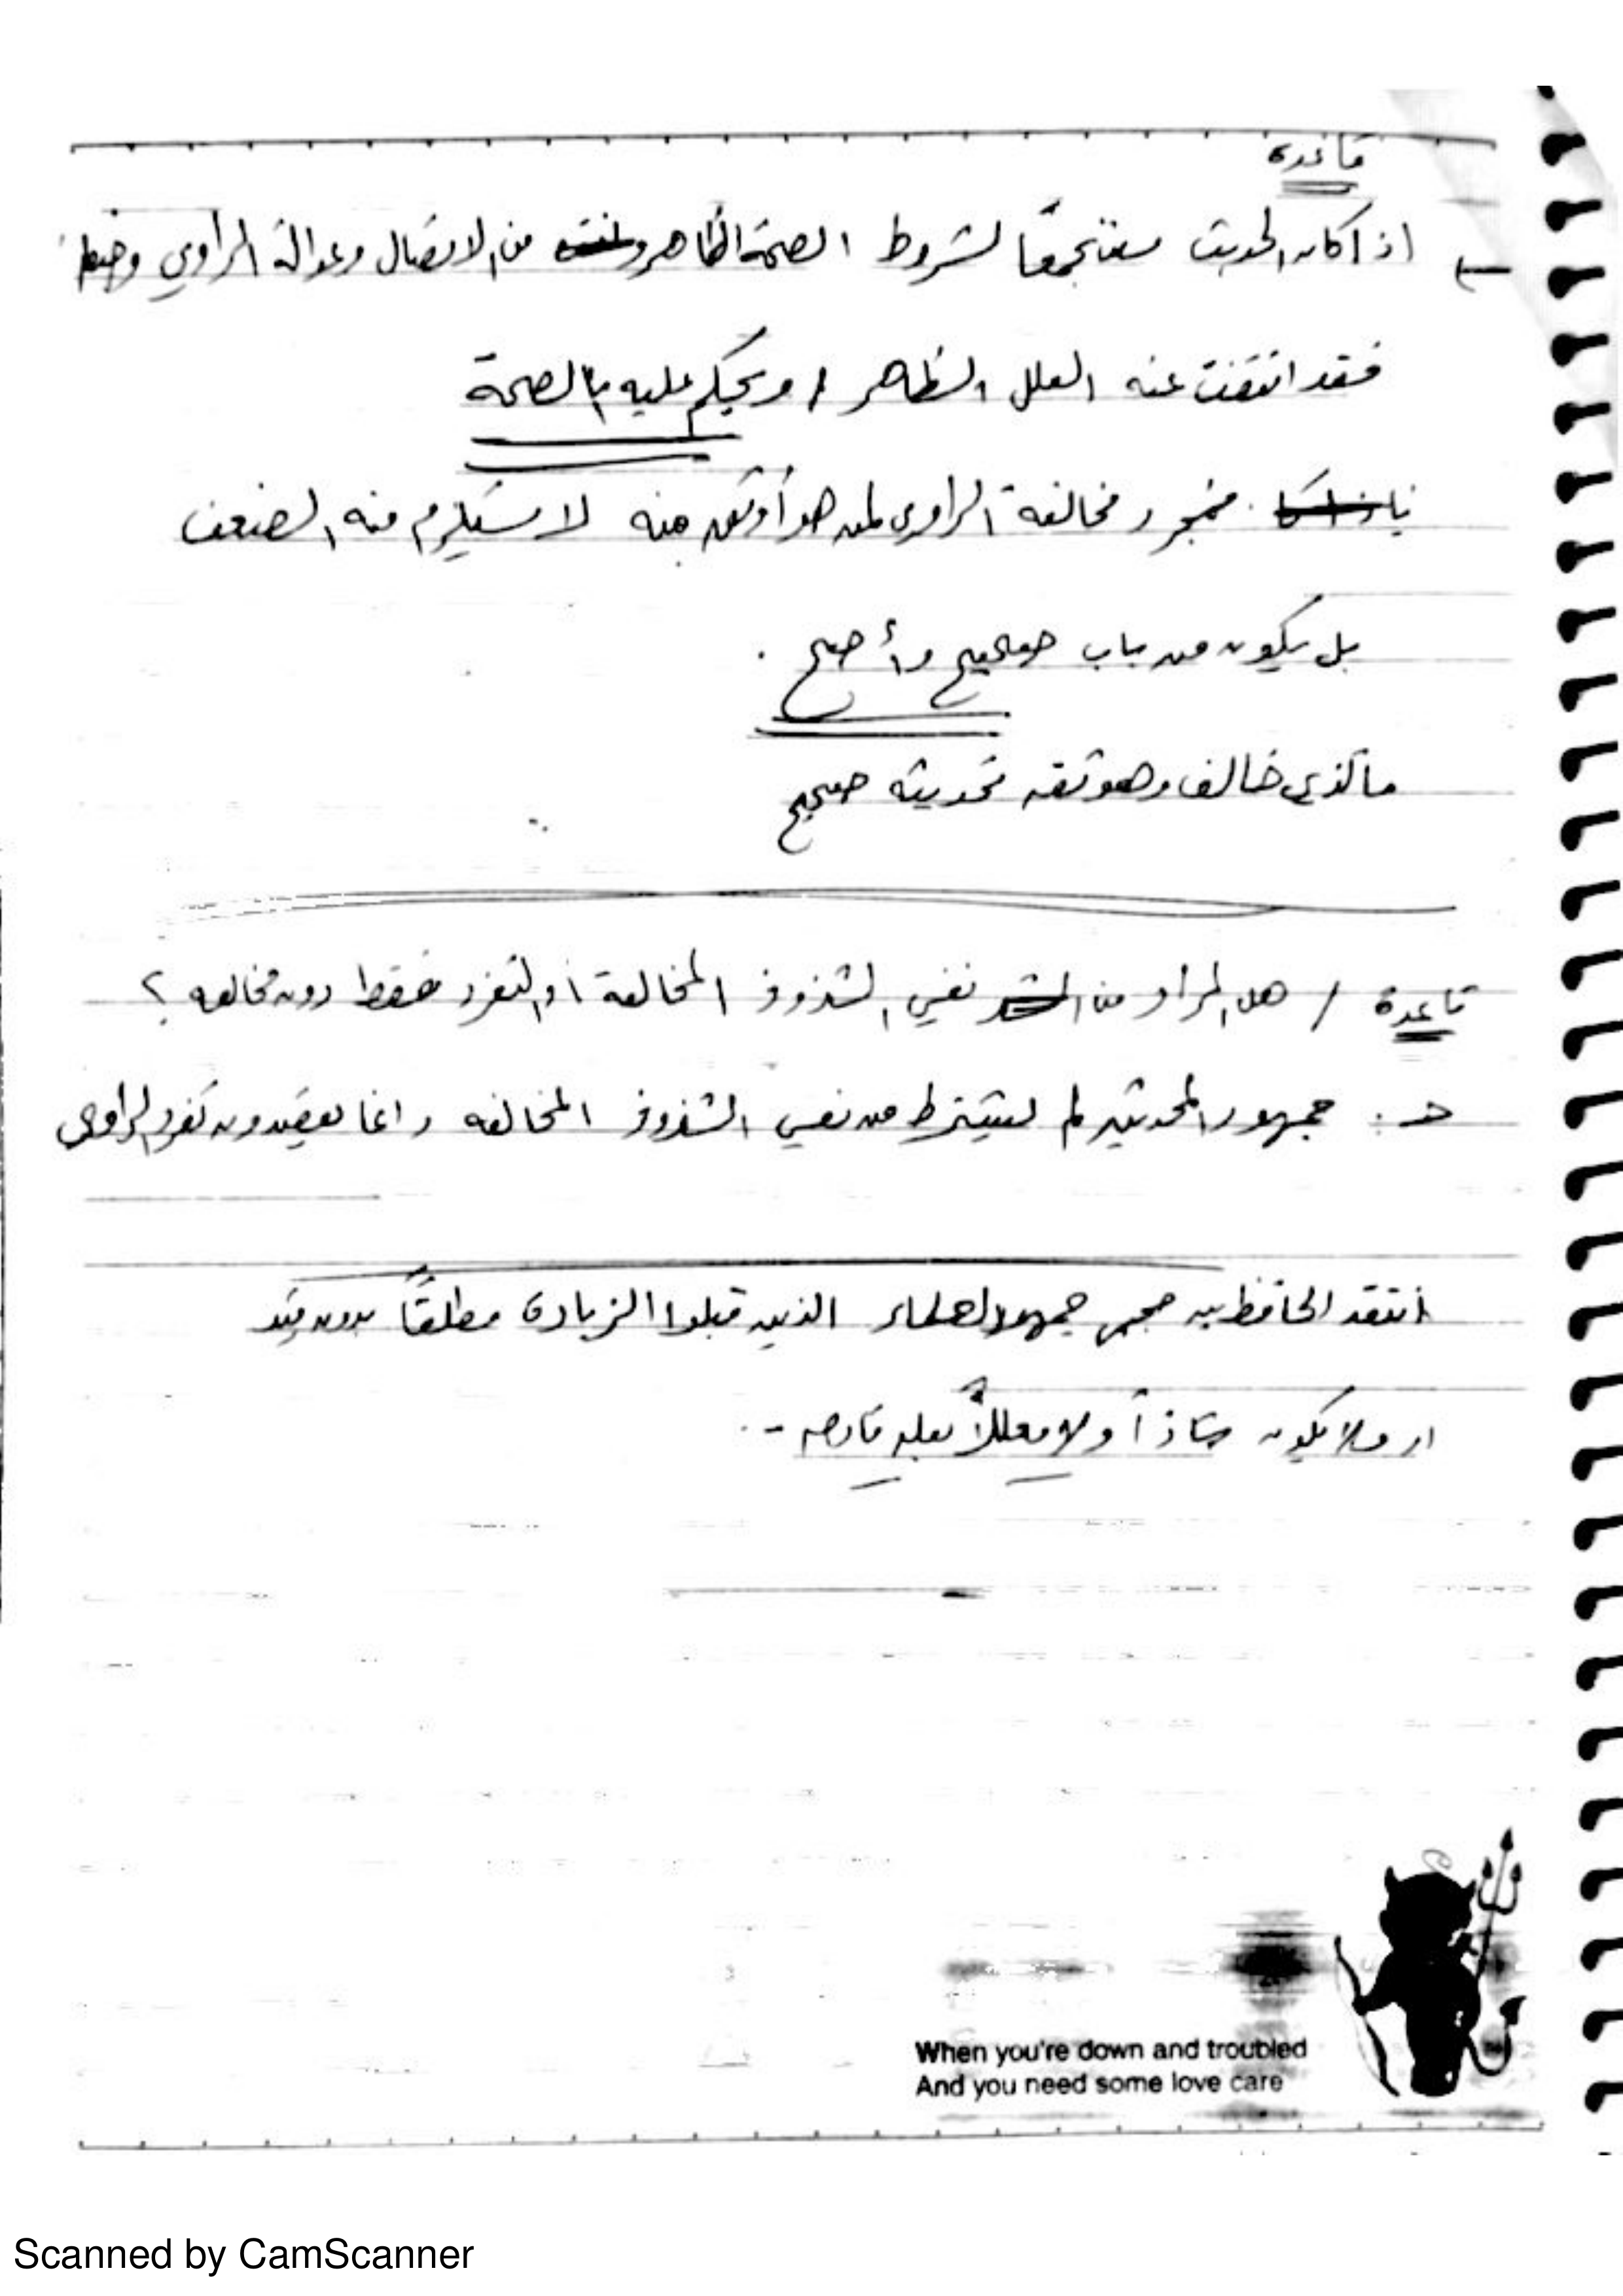 قاعدة
اذا كان الحديث مستجمعًا لشروط الصحة الظاهره من الاتصال وعدالة الراوي وضبط
فقد انتفت عنه العلل الظاهر / ويحكم عليه بالصحة
مجرد مخالفة الراوي لمن هو أوثق منه لا يستلزم منه الضعف
بل يكون من باب صحيح وأصح .
فالذي خالف وهو ثقه فحديثه صحيح
قاعدة / هل المراد من نفي الشذوذ المخالفة أو التفرد فقط دون مخالفه ؟
ج : جمهور المحدثين لم يشترط من نفي الشذوذ المخالفه وانما يقصدون تفرد الراوي
انتقد الحافظ بن حجر جمهور العلماء الذين قبلوا الزيادة مطلقًا بدون قيد
ان لا يكون شاذاً ولا معللاً بعله قادحه - .
When you're down and troubled
And you need some love care
Scanned by CamScanner